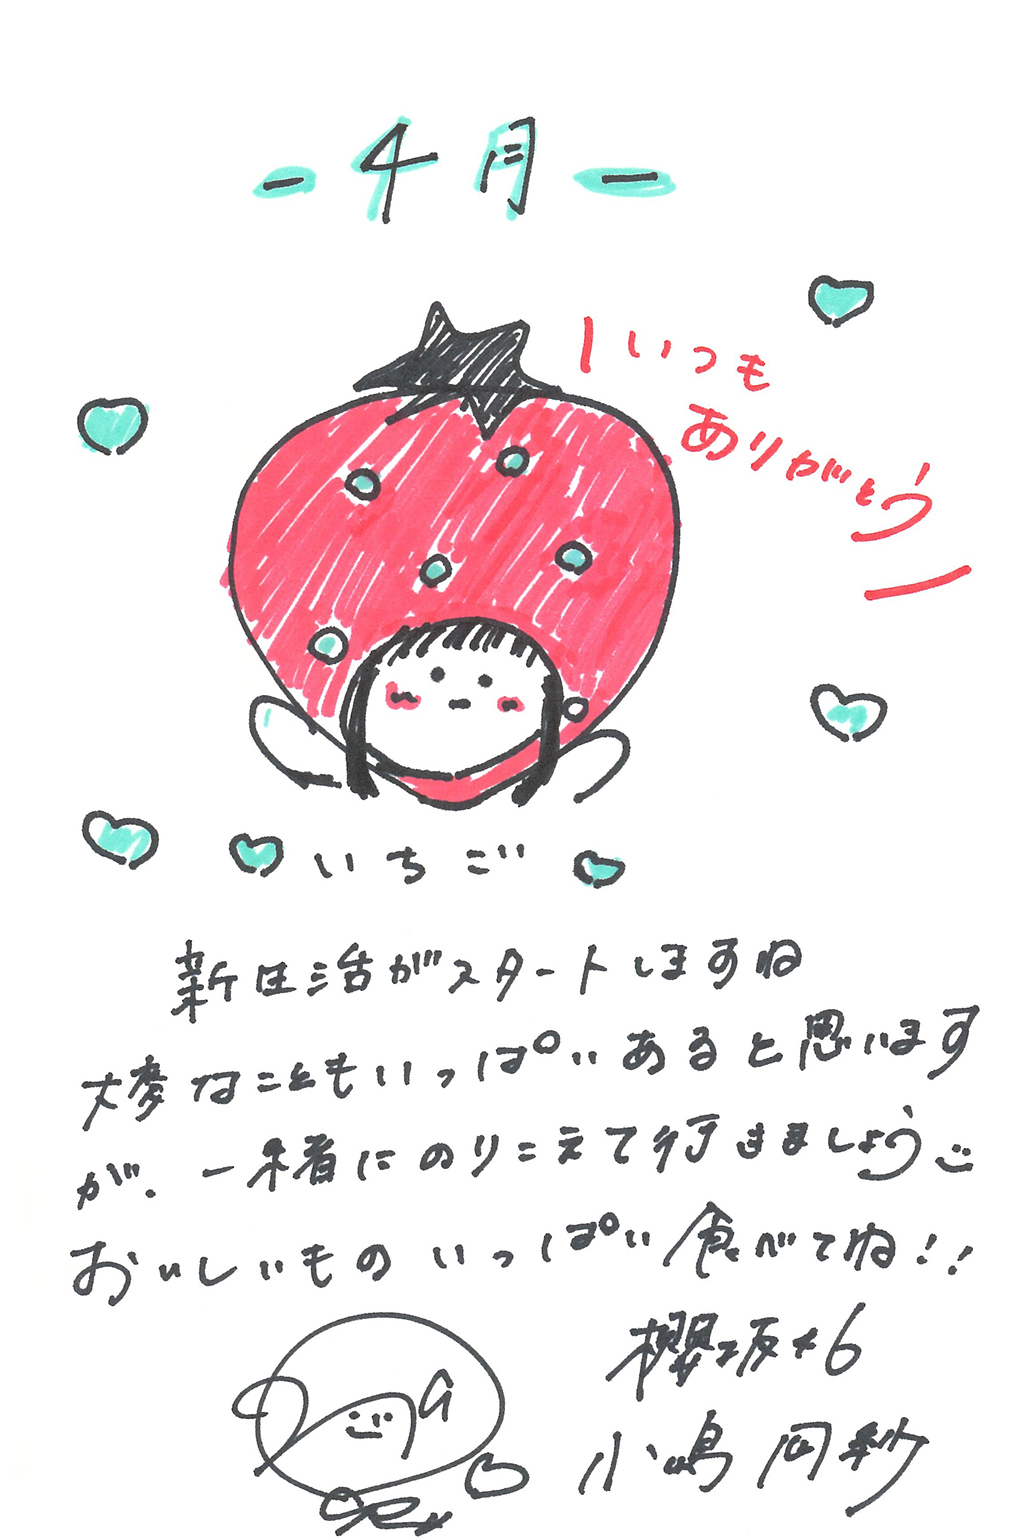 -4月-
いつも
ありがとう
いちご
新生活がスタートしますね
大変なこともいっぱいあると思います
が、一緒にのりこえて行きましょう
おいしいものいっぱい食べてね!!
櫻坂46
小島凪紗